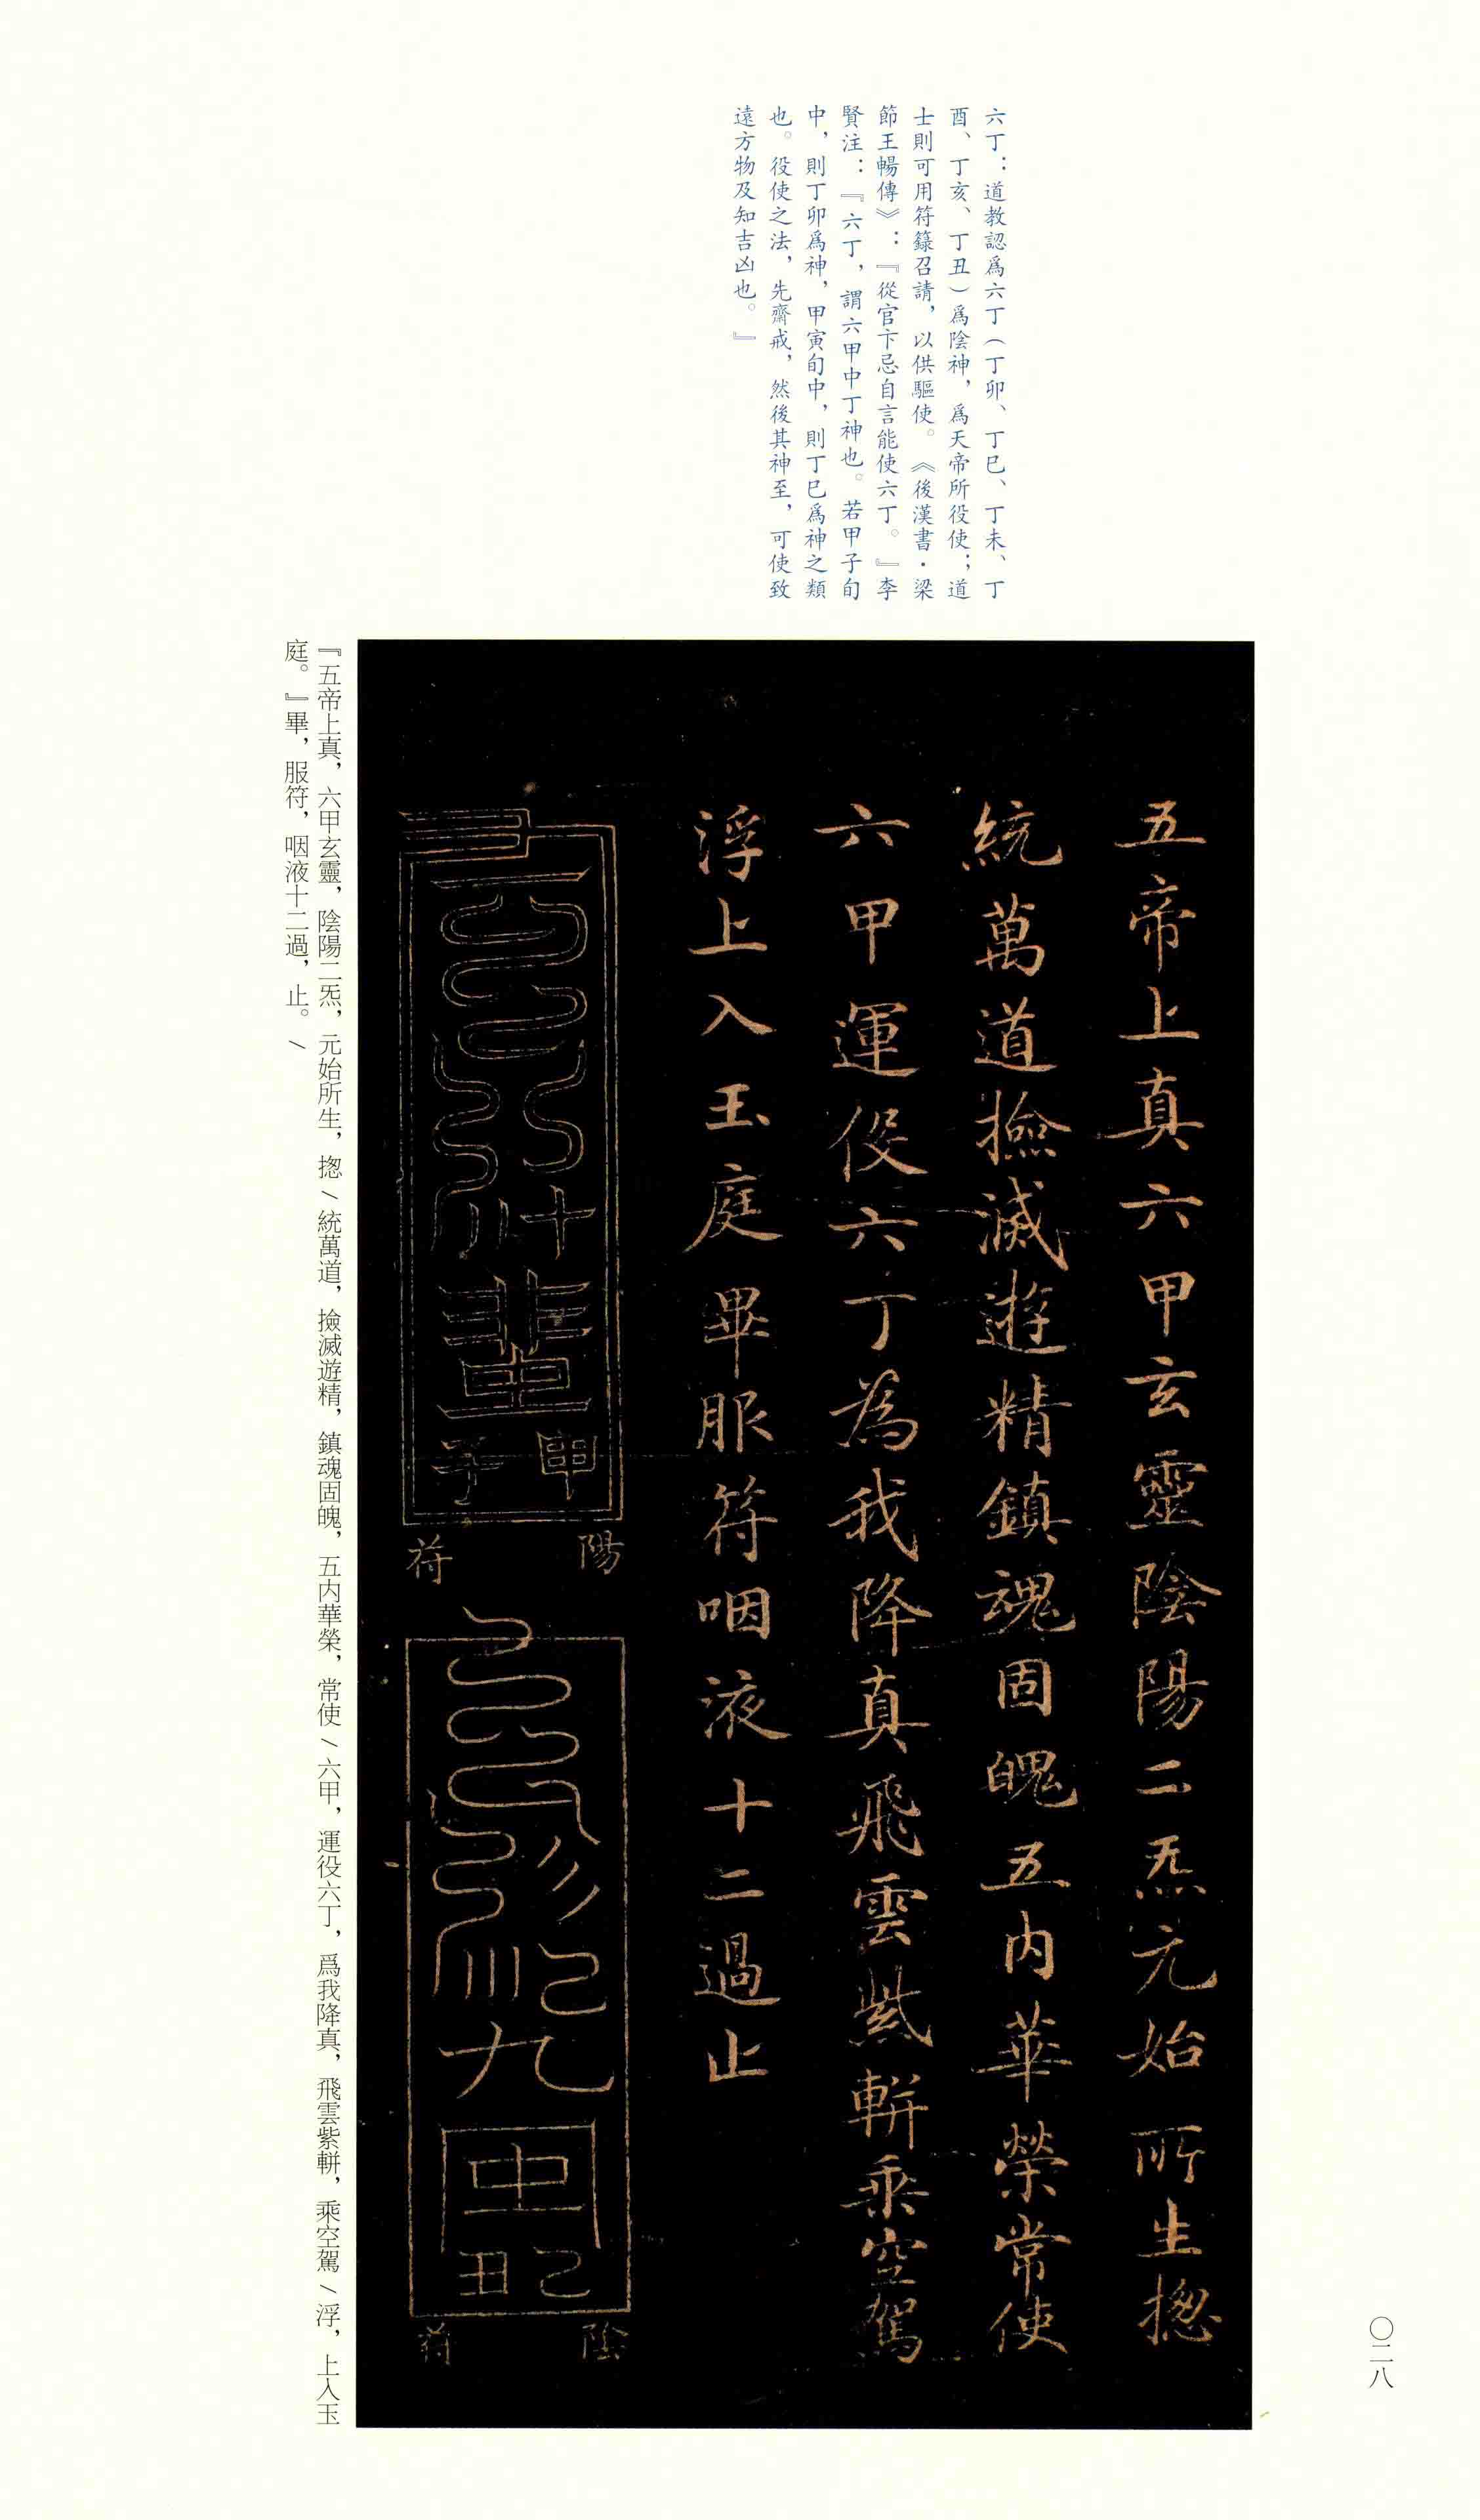 六丁：道教認爲六丁（丁卯、丁巳、丁未、丁
酉、丁亥、丁丑）爲陰神，爲天帝所役使；道
士則可用符籙召請，以供驅使。《後漢書·梁
節王暢傳》：『從官卞忌自言能使六丁。』李
賢注：『六丁，謂六甲中丁神也。若甲子旬
中，則丁卯爲神，甲寅旬中，則丁巳爲神之類
也。役使之法，先齋戒，然後其神至，可使致
遠方物及知吉凶也。』
五帝上真六甲玄靈陰陽二炁元始所生揔
統萬道撿滅遊精鎮魂固魄五内華榮常使
六甲運役六丁為我降真飛雲紫軿乘空駕
浮上入玉庭畢服符咽液十二過止
甲子
陽符
己丑
陰符
『五帝上真，六甲玄靈，陰陽二炁，元始所生，揔/統萬道，撿滅遊精，鎮魂固魄，五内華榮，常使/六甲，運役六丁，爲我降真，飛雲紫軿，乘空駕/浮，上入玉
庭。』畢，服符，咽液十二過，止。/
〇二八